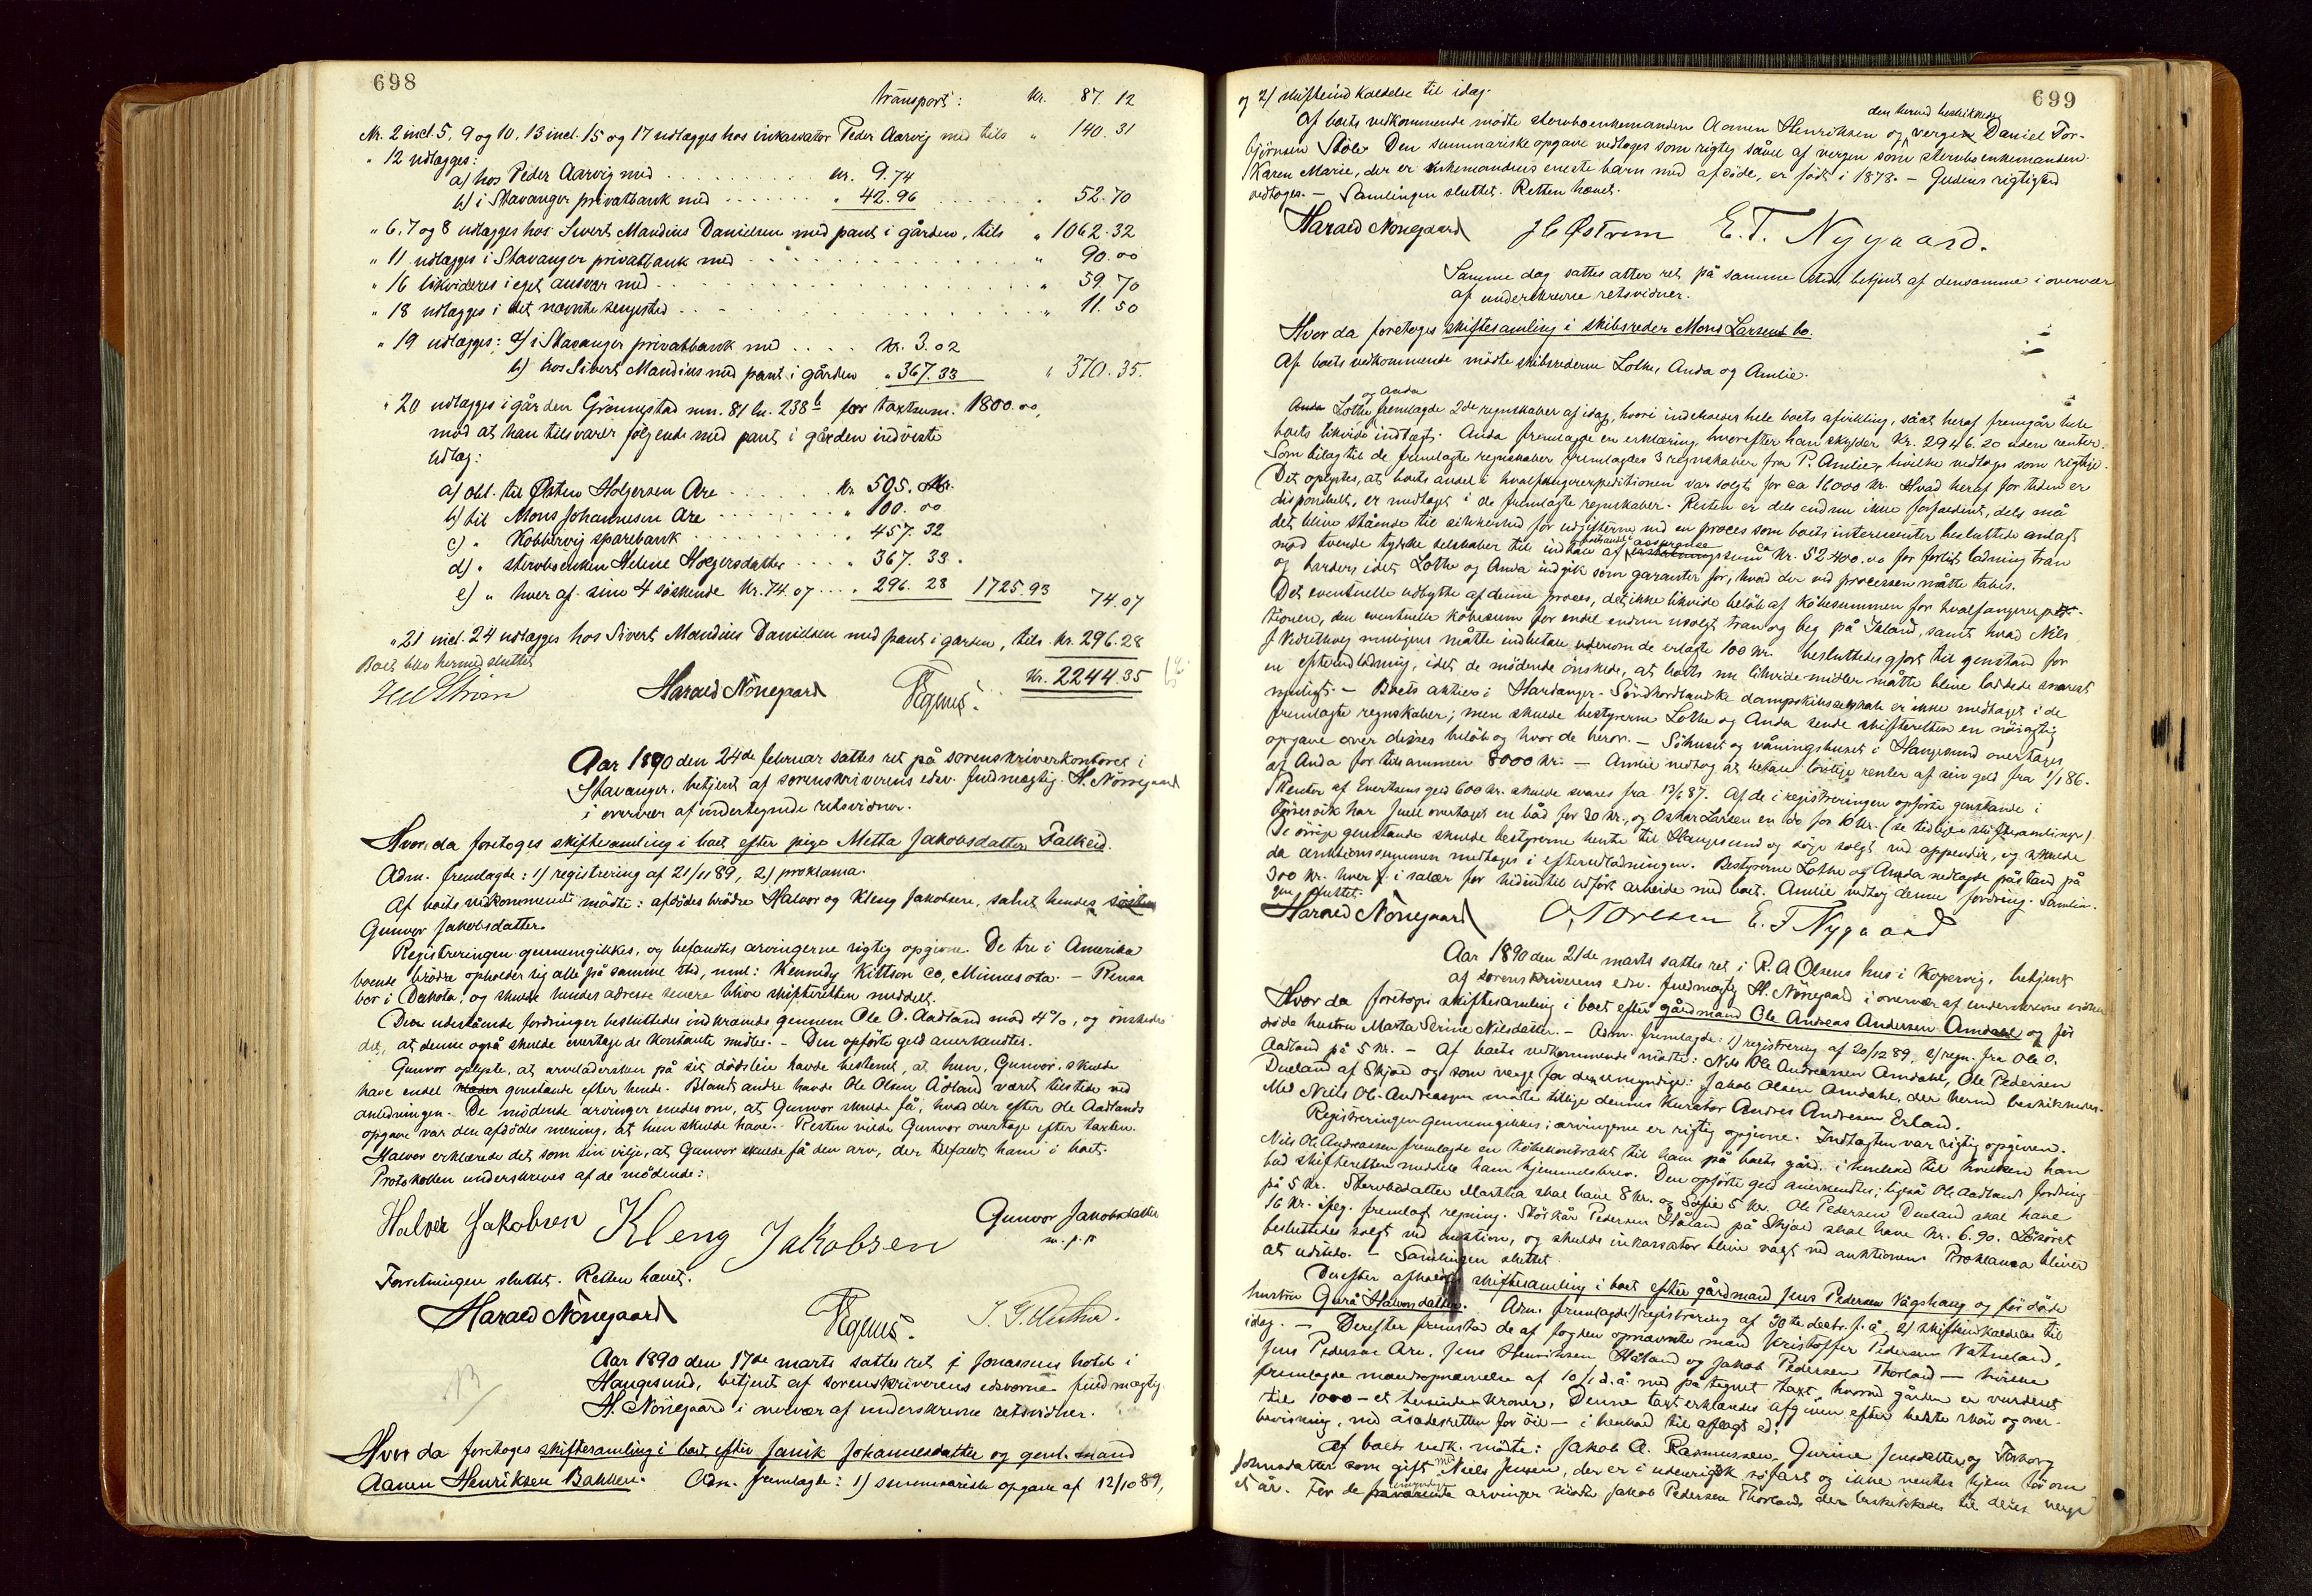 698
transport: kr. 87.12
Nr. 2 incl. 5, 9 og 10, 13 incl. 15 og 17 udlægges hos inkassator Peder Aarvig med tils " 140.31
" 12 udlægges:
a) hos Peder Aarvig med kr. 9.74
b) i Stavanger privatbank med " 42.96 " 52.70
" 6, 7 og 8 udlægges hos Sivert Mandius Danielsen med pant i gården, tils " 1062.32
" 11 udlægges i Stavanger privatbank med " 90.00
" 16 likvideres i eget ansvar med " 59.70
" 18 udlægges i det nævnte sengested " 11.50
" 19 udlægges: a) i Stavanger privatbank med kr. 3.02
b) hos Sivert Mandius med pant i gården " 367.33 " 370.35.
" 20 udlægges i gården Grönnestad mn. 81 ln. 238 b for taxtsum. 1800.00,
mod at han tilsvarer følgende med pant i gården indviste
udlæg:
a) obl. til Østen Holgersen Are kr. 505.
b) til Mons Johannesen Are " 100.00
c) " Kobbervig sparebank " 457.32
d) " stervboenken Helene Holgersdatter " 367.33.
e) " hver af sine 4 söskende kr. 74.07 " 296.28 1725.93 74.07
" 21 incl. 24 udlægges hos Sivert Mandius Danielsen med pant i gården, tils. kr. 296.28
Boet blev hermed sluttet
kr. 2244.35
Harald Nörregaard
Aar 1890 den 24de februar sattes ret på sorenskriverkontoret i
Stavanger, betjent af sorenskriverens edsv. fuldmægtig H. Nörregaard
i overvær af undertegnede retsvidner.
Hvor da foretoges skiftesamling i boet efter pige Metta Jakobsdatter Falkeid.
Adm. fremlagde: 1) registrering af 21/11 89, 2) proklama.
Af boets vedkommende mödte: afdödes brödre Halvor og Kleng Jakobsen, samt hendes söster
Gunvor Jakobsdatter.
Registreringen gennemgikkes, og befandtes arvingerne rigtig opgivne. De tre i Amerika
boende brödre opholder sig alle på samme sted, nml: Kennedy Kittson Co, Minnesota. –
bor i Dakota, og skulde hendes adresse senere blive skifteretten meddelt.
Den udestående fordringer besluttedes indkrævede gennem Ole O. Aadland mod 4%, og önskedes
det, at denne også skulde overtage de kontante midler. – Den opförte gæld anerkendtes.
Gunvor oplyste, at arveladersken på sit dödsleie havde bestemt, at hun, Gunvor, skulde
have endel klæder genstande efter hende. Blandt andre havde Ole Olsen Ådland været tilstede ved
anledningen. De mödende arvinger enedes om, at Gunvor skulde få, hvad der efter Ole Aadlands
opgave var den afdödes mening, at hun skulde have. Resten vilde Gunvor overtage efter taxten.
Halvor erklærede det som sin vilje, at Gunvor skulde få den arv, der tilfaldt ham i boet.
Protokollen underskrives af de mödende:
Halvor Jakobsen Kleng Jakobsen Gunvor Jakobsdatter
m. p. p
Forretningen sluttet. Retten hævet.
Harald Nörregaard
Aar 1890 den 17de marts sattes ret i Jonassens hotel i
Haugesund, betjent af sorenskriverens edsvorne fuldmægtig
H. Nörregaard i overvær af underskrevne retsvidner.
Hvor da foretoges skiftesamling i boet efter Janik Johannesdatter og genl. mand
Aanen Henriksen Bakken. Adm. fremlagde: 1) summariske opgave af 12/10 89,
699
og 2) skifteindkaldelse til idag.
Af boets vedkommende mödte stervboenkemanden Aanen Henriksen og den herved beskikkede vergen Daniel Tor-
björnsen Stole. Den summariske opgave vedtoges som rigtig såvel af vergen som stervboenkemanden.
Karen Marie, der er enkemandens eneste barn med afdöde, er födt i 1878. – Gældens rigtighed
vedtoges. – Samlingen sluttet. Retten hævet.
Harald Nörregaard J C Østrem E. T. Nygaard.
Samme dag sattes atter ret på samme sted, betjent af densamme i overvær
af underskrevne retsvidner.
Hvor da foretoges skiftesamling i skibsreder Mons Larsens bo.
Af boets vedkommende mödte skibsrederne Lothe, Anda og Amlie.
Anda Lothe og Anda fremlagde 2de regnskaber af idag, hvori indeholdes hele boets afvikling, såat heraf fremgår hele
boets likvide indtægt. Anda fremlagde en erklæring hvorefter han skylder kr. 2946.20 uden renter.
Som bilag til de fremlagte regnskaber fremlagdes 3 regnskaber fra P. Amlie, hvilke vedtoges som rigtige.
Det oplystes, at boets andel i hvalfangerexpeditionen var solgt for ca 16000 kr. Hvad heraf for tiden er
disponibelt, er medtaget i de fremlagte regnskaber. Resten er dels endnu ikke forfaldent, dels må
det blive stående til sikkerhed for udgifterne ved en proces som boets interessenter besluttede anlagt
mod tvende tydske selskaber til indtale af assurancesum kr. 52400.00 for forlist ladning tran
og barders idet Lothe og Anda indgik som garanter for, hvad der ved processen måtte tabes.
Det eventuelle udbytte af denne proces, det ikke likvide belöb af köbesummen for hvalfangerexpedi-
tionen, den eventuelle köbesum for endel endnu usolgt tran og beg på Island, samt hvad Nils
J Vidnæs muligens måtte indbetale udover de erlagte 100 kr. besluttedes gjort til genstand for
en efterudlodning, idet de mödende önskede, at boets nu likvide midler måtte blive loddede snarest
muligt. – Boets aktier i Hardanger-Söndhordlandske dampskibsselskab er ikke medtaget i de
fremlagte regnskaber; men skulde bestyrerne Lothe og Anda sende skifteretten en nöiagtig
opgave over disses belöb og hvor de beror. – Söhuset og våningshuset i Haugesund overtages
af Anda for tilsammen 8000 kr. – Amlie vedtog at betale lovlige renter af sin gæld fra 1/1 86.
Renter af Evertsens gæld 600 kr. skulde svares fra 13/6 87. Af de i registreringen opförte genstande i
har Juell overtaget en båd for 20 kr., og Oskar Larsen en do for 10 kr. (se tidligere skiftesamlinger)
De övrige genstande skulde bestyrerne hente til Haugesund og söge solgt ved appendix, og skulde
da auktionssummen medtages i efterudlodningen. Bestyrerne Lothe og Anda nedlagde påstand på
300 kr. hver i salær for hidindtil udfört arbeide med boet. Amlie vedtog denne fordring. Samlin-
gen sluttet.
Harald Nörregaard O. Toresen E. T Nygaard
Aar 1890 den 21de marts sattes ret i R. A Olsens hus i Kopervig, betjent
af sorenskriverens edsv. fuldmægtig H. Nörregaard i overvær af underskrevne vidner
Hvor da foretoges skiftesamling i boet efter gårdmand Ole Andreas Andersen Amdahl og för
döde hustru Marta Serine Nilsdatter. – Adm. fremlagde: 1) registrering af 20/12 89, 2) regn. fra Ole O.
Aadland på 5 kr. – Af boets vedkommende mödte: Nils Ole Andreassen Amdahl, Ole Pedersen
Dueland af Skjold og som verge for de umyndige: Jakob Olsen Amdahl, der herved beskikkedes.
Med Niels Ol. Andreassen mödte tillige dennes kurator Andres Andresen Erland.
Registreringen gennemgikkes; arvingerne er rigtig opgivne. Indtægten var rigtig opgiven.
Nils Ol. Andreassen fremlagde en köbekontrakt til ham på boets gård i henhold til hvilken han
bad skifteretten meddele ham hjemmelsbrev. Den opförte gæld anerkendtes; ligeså Ole Aadlands fordring
på 5 kr. Stervbodatter Martha skal have 8 kr. og Sofie 5 kr. Ole Pedersen Dueland skal have
16 kr. ifölg. fremlagt regning. Störkår Pedersen Håland på Skjold skal have kr. 6.90. Lösöret
besluttedes solgt ved auktion, og skulde inkassator blive valgt ved auktionen. Proklama bliver
at udstede. – Samlingen sluttet.
Derefter afholdtes skiftesamling i boet efter gårdmand Jens Pedersen Vågshaug og för döde
hustru Gurå Halvorsdatter. Adm. fremlagde 1) registrering af 30te decbr. f. å. 2) skifteindkaldelse til
idag. – Derefter fremstod de af fogden opnævnte mænd Kristoffer Pedersen Vatneland,
Jens Pedersen Are, Jens Henriksen Håland og Jakob Pedersen Thorland – hvilke
fremlagde mandsopnævnelse af 10/1 d. å. med påtegnet taxt, hvorved gården er vurderet
til 1000 – et tusinde – kroner. Denne taxt erklæredes afgiven efter bedste skön og over-
bevisning, med åsædesretten for öie – i henhold til aflagt ed.
Af boets vedk. mödte: Jakob A. Rasmussen, Gurine Jensdatter og Torborg
Johnsdatter som gift med Niels Jensen, der er i udenrigsk söfart og ikke ventes hjem för om
et år. For de umyndige arvinger mödte Jakob Pedersen Thorland der beskikkedes til deres verge